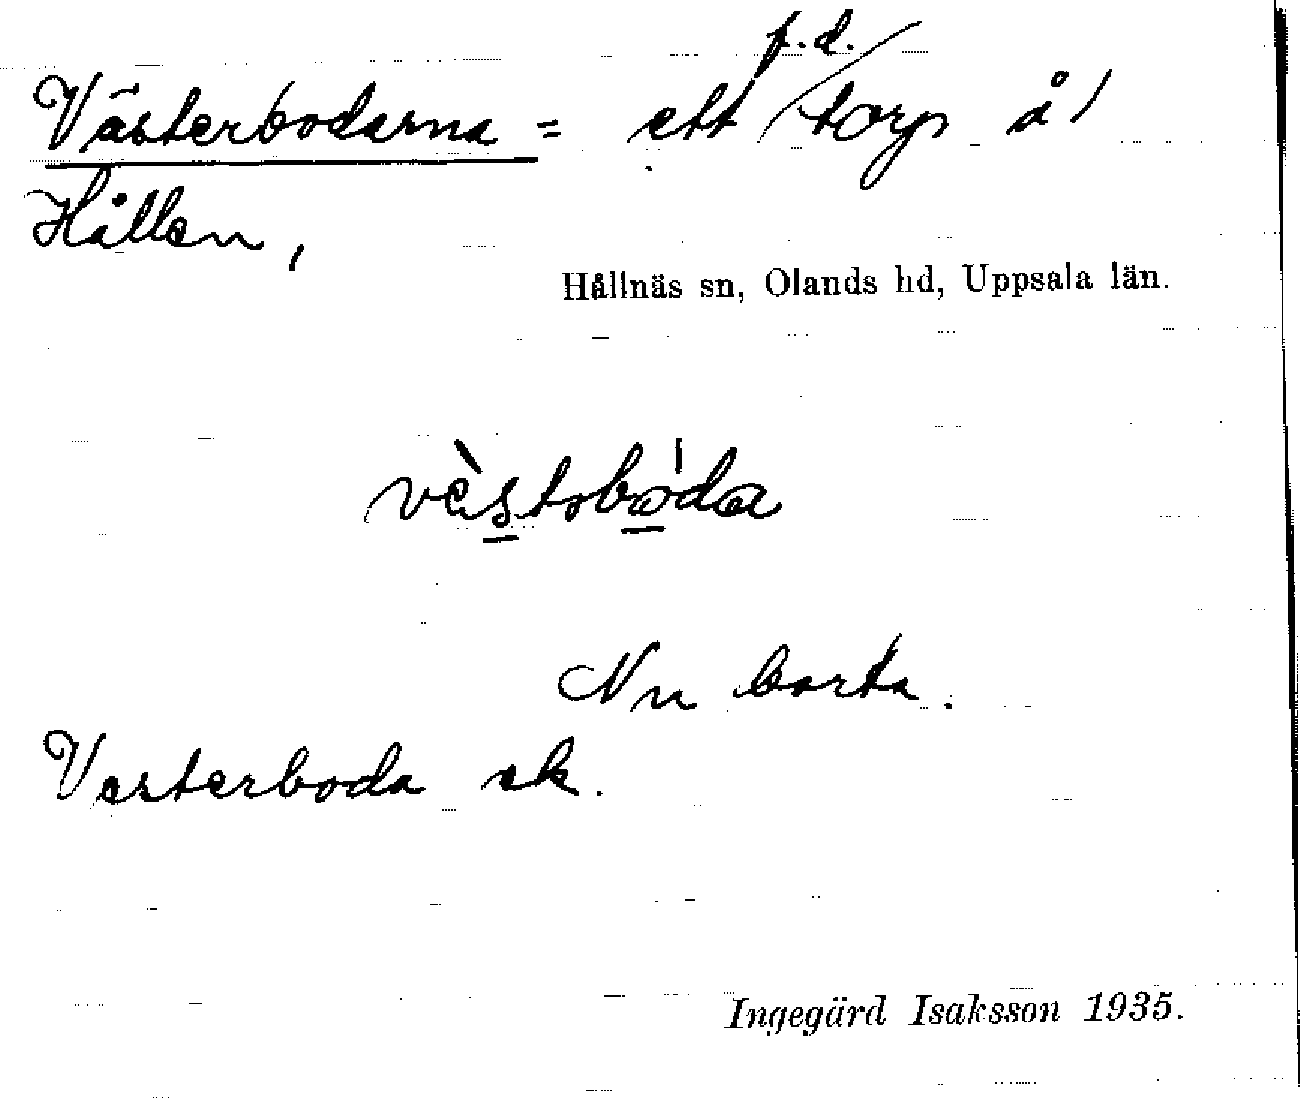 Västerbodarna = ett f.d. torp å
Hållen,
Hållnäs sn, Olands hd, Uppsala län.
vèstərbóda
Nu borta.
Vesterboda ek.
Ingegärd Isaksson 1935.